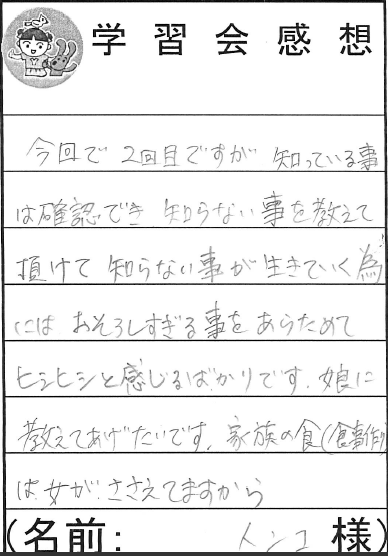 学習会感想
今回で 2回目ですが 知っている事
は確認でき 知らない事を教えて
頂けて 知らない事が生きていく為
には おそろしすぎる事を あらためて
ヒシヒシと感じるばかりです。娘に
教えてあげたいです。家族の食(食事作り)
は女が ささえてますから
(名前: トンコ 様)